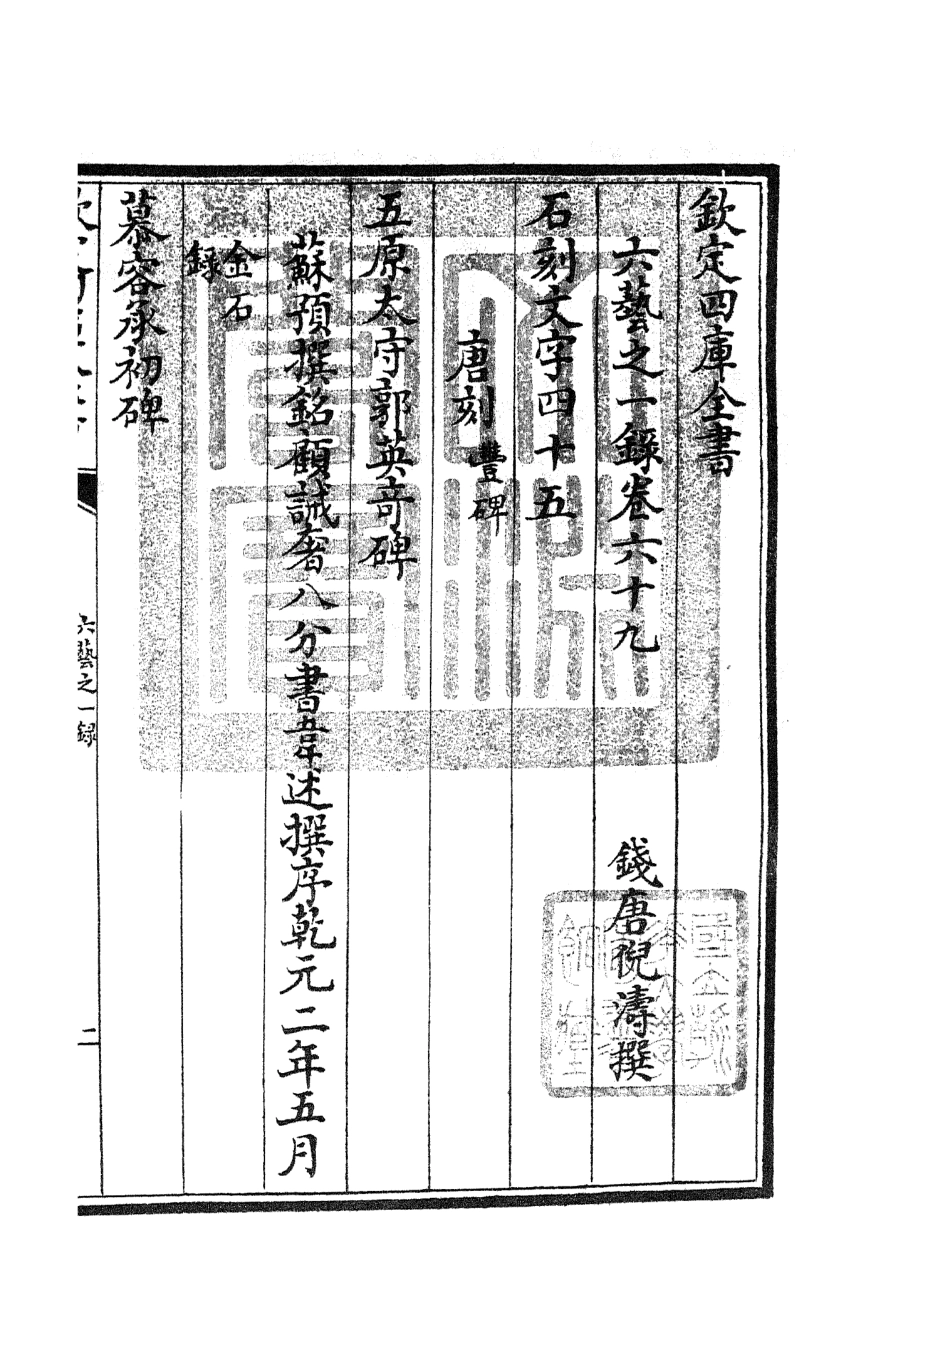 欽定四庫全書
六藝之一錄卷六十九
錢唐倪濤撰
石刻文字四十五
唐刻豐碑
五原太守郭英奇碑
蘇預撰銘顧誡奢八分書韋述撰序乾元二年五月
金石
錄
慕容承初碑
六藝之一錄
二